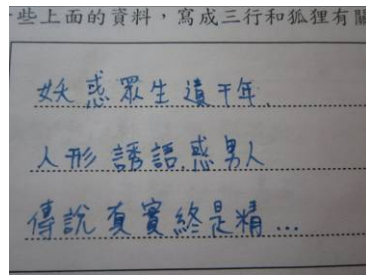 些上面的資料，寫成三行和狐狸有關
妖惑眾生遺千年
人形誘語惑男人
傳說真實終是精...